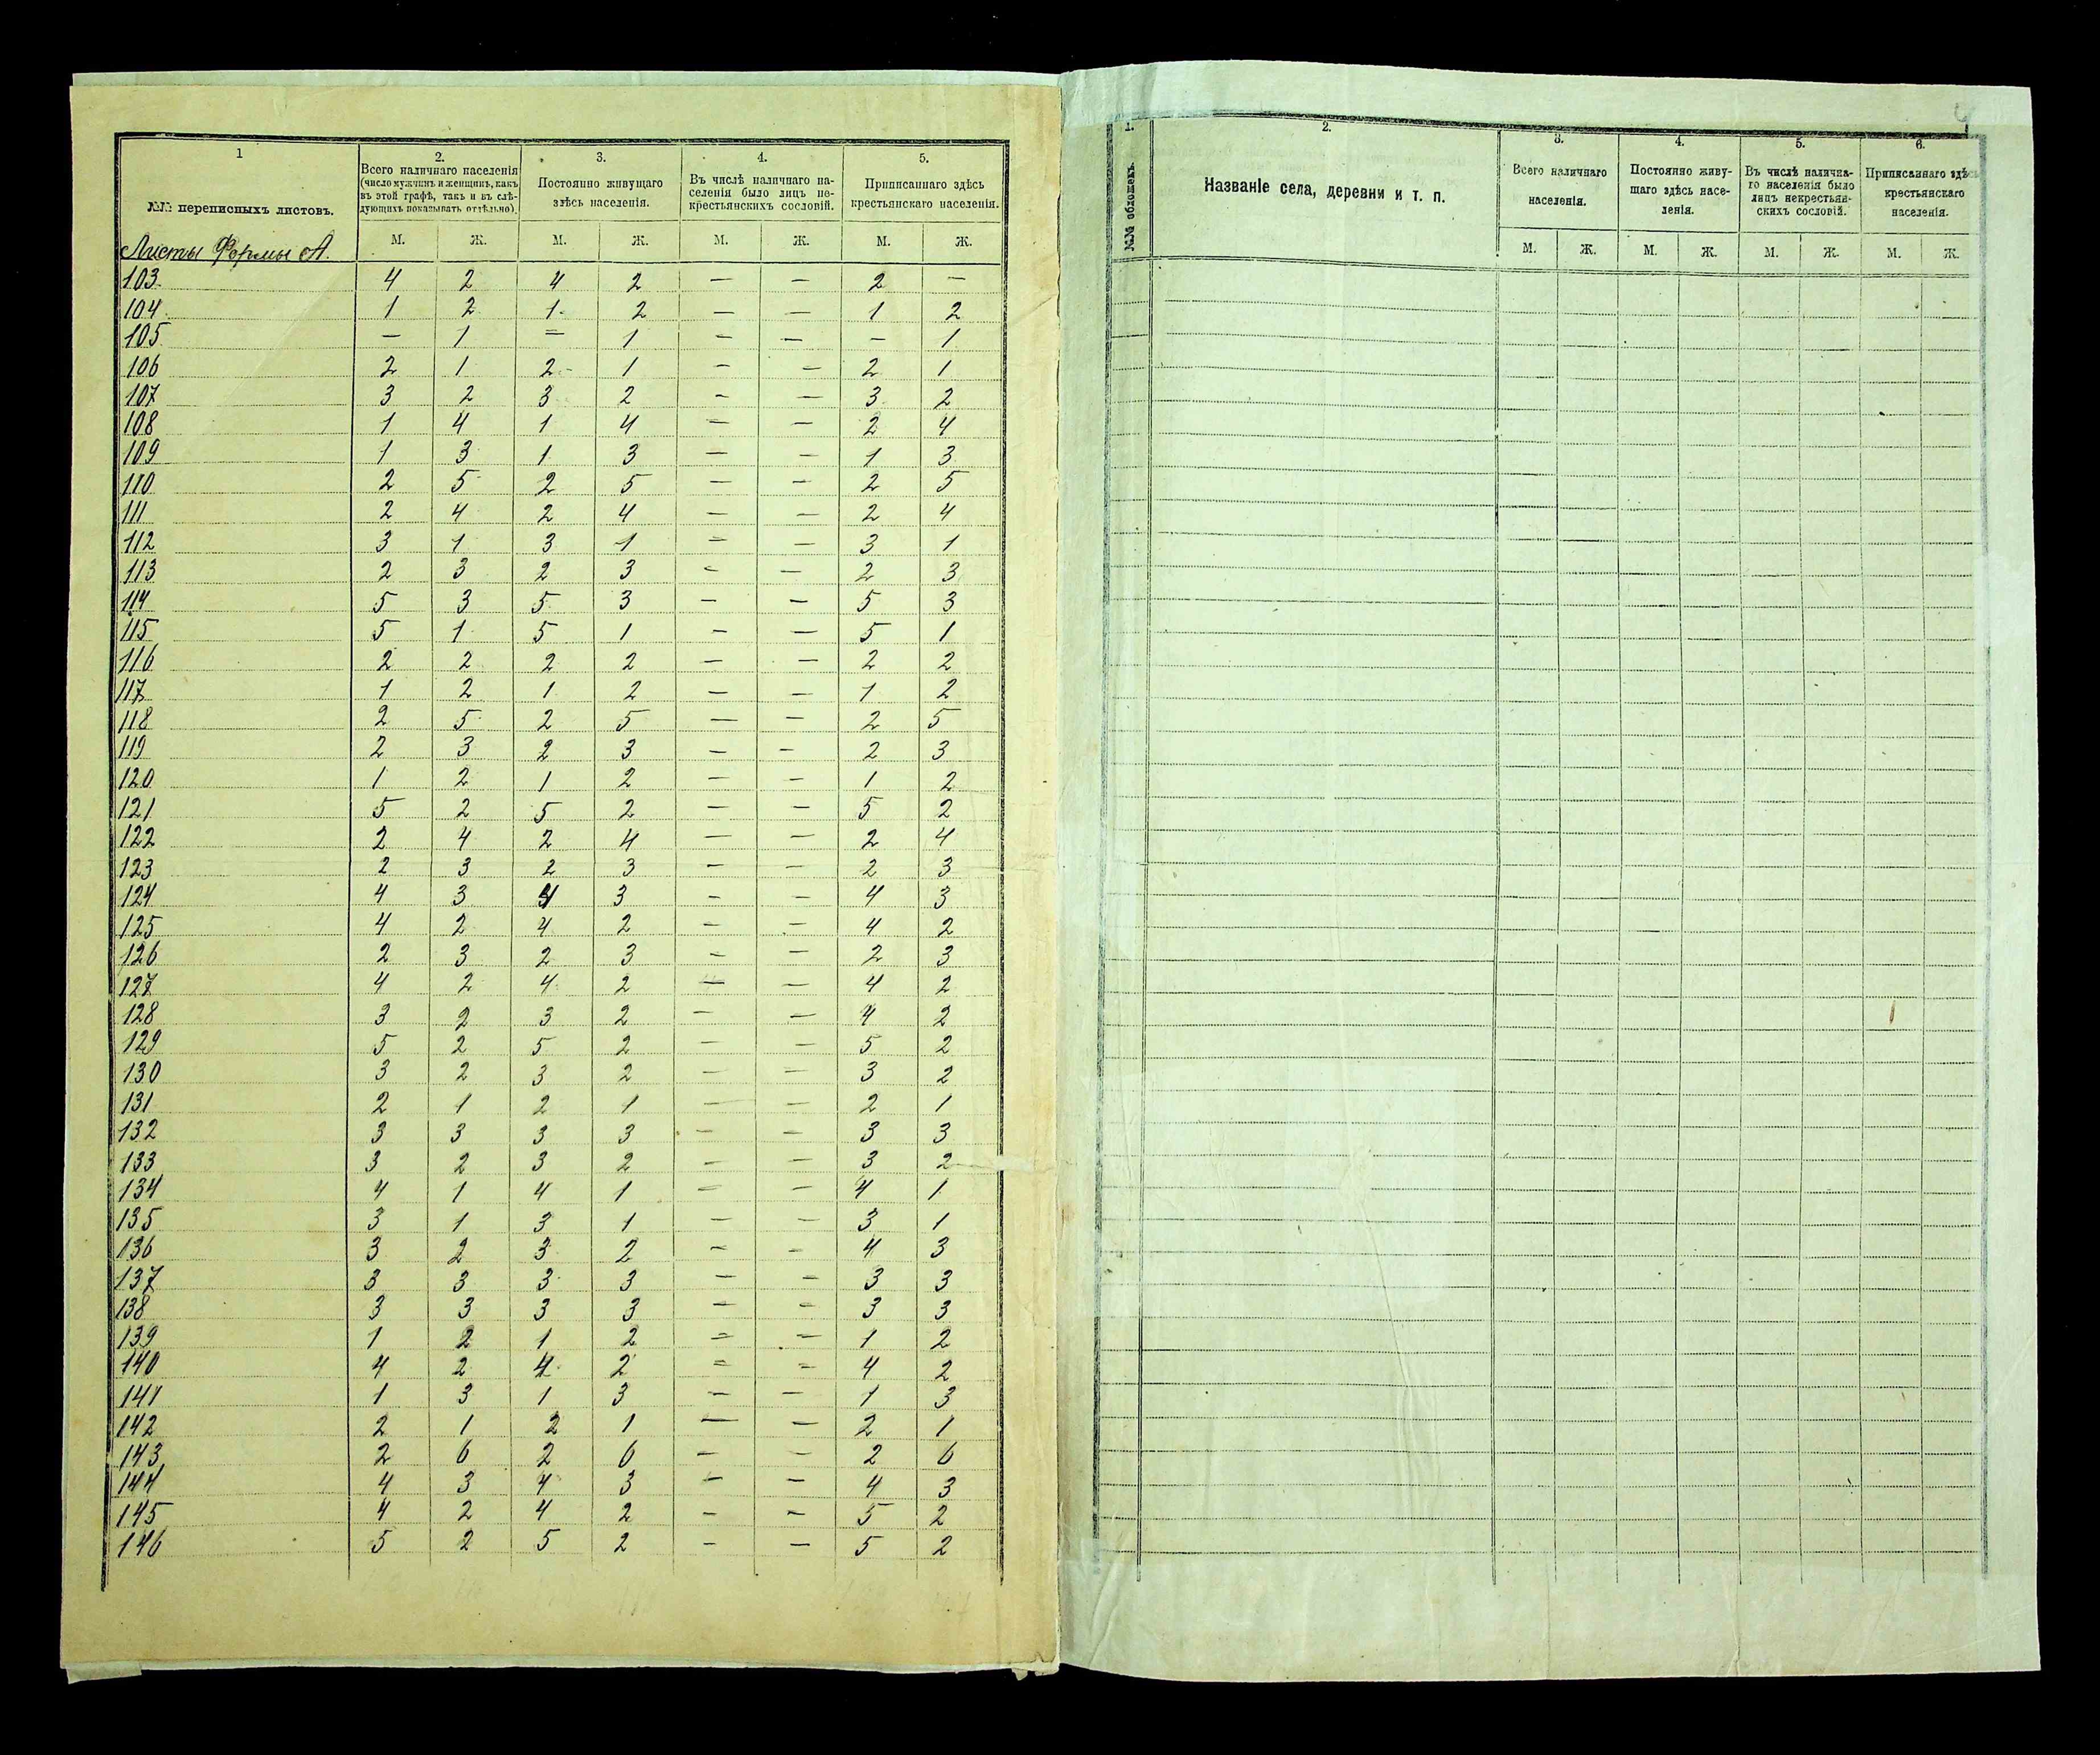 1
№№ переписныхъ листовъ.
2.
Всего наличнаго населенія
(число мужчинъ и женщинъ, какъ
въ этой графѣ, такъ и въ слѣ-
дующихъ показывать отдѣльно).
3.
Постоянно живущаго
здѣсь населенія.
4.
Въ числѣ наличнаго на-
селенія было лицъ не-
крестьянскихъ сословій.
5.
Приписаннаго здѣсь
крестьянскаго населенія.
М. Ж. М. Ж. М. Ж. М. Ж.
Листы Формы А.
103 4 2 4 2 — — 2 —
104 1 2 1 2 — — 1 2
105 — 1 — 1 — — — 1
106 2 1 2 1 — — 2 1
107 3 2 3 2 — — 3 2
108 1 4 1 4 — — 2 4
109 1 3 1 3 — — 1 3
110 2 5 2 5 — — 2 5
111 2 4 2 4 — — 2 4
112 3 1 3 1 — — 3 1
113 2 3 2 3 — — 2 3
114 5 3 5 3 — — 5 3
115 5 1 5 1 — — 5 1
116 2 2 2 2 — — 2 2
117 1 2 1 2 — — 1 2
118 2 5 2 5 — — 2 5
119 2 3 2 3 — — 2 3
120 1 2 1 2 — — 1 2
121 5 2 5 2 — — 5 2
122 2 4 2 4 — — 2 4
123 2 3 2 3 — — 2 3
124 4 3 4 3 — — 4 3
125 4 2 4 2 — — 4 2
126 2 3 2 3 — — 2 3
127 4 2 4 2 — — 4 2
128 3 2 3 2 — — 4 2
129 5 2 5 2 — — 5 2
130 3 2 3 2 — — 3 2
131 2 1 2 1 — — 2 1
132 3 3 3 3 — — 3 3
133 3 2 3 2 — — 3 2
134 4 1 4 1 — — 4 1
135 3 1 3 1 — — 3 1
136 3 2 3 2 — — 4 3
137 3 3 3 3 — — 3 3
138 3 3 3 3 — — 3 3
139 1 2 1 2 — — 1 2
140 4 2 4 2 — — 4 2
141 1 3 1 3 — — 1 3
142 2 1 2 1 — — 2 1
143 2 6 2 6 — — 2 6
144 4 3 4 3 — — 4 3
145 4 2 4 2 — — 5 2
146 5 2 5 2 — — 5 2
1.
№№ обложекъ
2.
Названіе села, деревни и т. п.
3.
Всего наличнаго
населенія.
4.
Постоянно живу-
щаго здѣсь насе-
ленія.
5.
Въ числѣ налична-
го населенія было
лицъ некрестьян-
скихъ сословій.
6.
Приписаннаго здѣсь
крестьянскаго
населенія.
М. Ж. М. Ж. М. Ж. М. Ж.